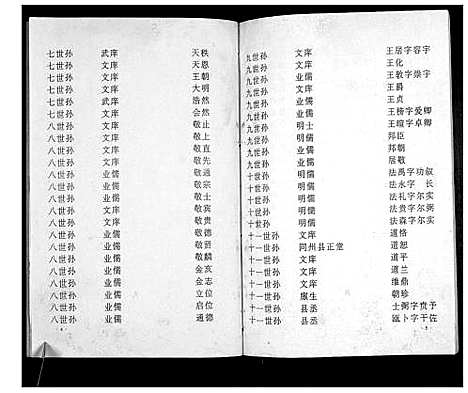 七世孙 武庠 天秩
七世孙 文庠 天恩
七世孙 文庠 王朝
七世孙 文庠 大明
七世孙 武庠 浩然
七世孙 文庠 会然
八世孙 文庠 敬止
八世孙 文庠 敬上
八世孙 文庠 敬直
八世孙 文庠 敬先
八世孙 业儒 敬通
八世孙 业儒 敬宗
八世孙 业儒 敬士
八世孙 文庠 敬宾
八世孙 文庠 敬贵
八世孙 业儒 敬德
八世孙 业儒 敬贤
八世孙 业儒 敬麟
八世孙 业儒 金亥
八世孙 业儒 金志
八世孙 业儒 立位
八世孙 业儒 启位
八世孙 业儒 通德
九世孙 文庠 王居字容宇
九世孙 业儒 王化
九世孙 文庠 王敦字崇宇
九世孙 文庠 王爵
九世孙 业儒 王贞
九世孙 业儒 王榜字爱卿
九世孙 明士 王瑄字卓卿
九世孙 文庠 邦臣
九世孙 业儒 邦朝
九世孙 文庠 居敬
十世孙 明儒 法禹字功叙
十世孙 明儒 法永字 长
十世孙 明儒 法礼字尔实
十世孙 明儒 法贵字尔弼
十世孙 明儒 法森字尔实
十一世孙 文庠 道恪
十一世孙 同州县正堂 道恕
十一世孙 文庠 道平
十一世孙 文庠 道兰
十一世孙 文庠 维鼎
十一世孙 廪生 朝珍
十一世孙 县丞 士弼字赉予
十一世孙 县丞 卜字干佐